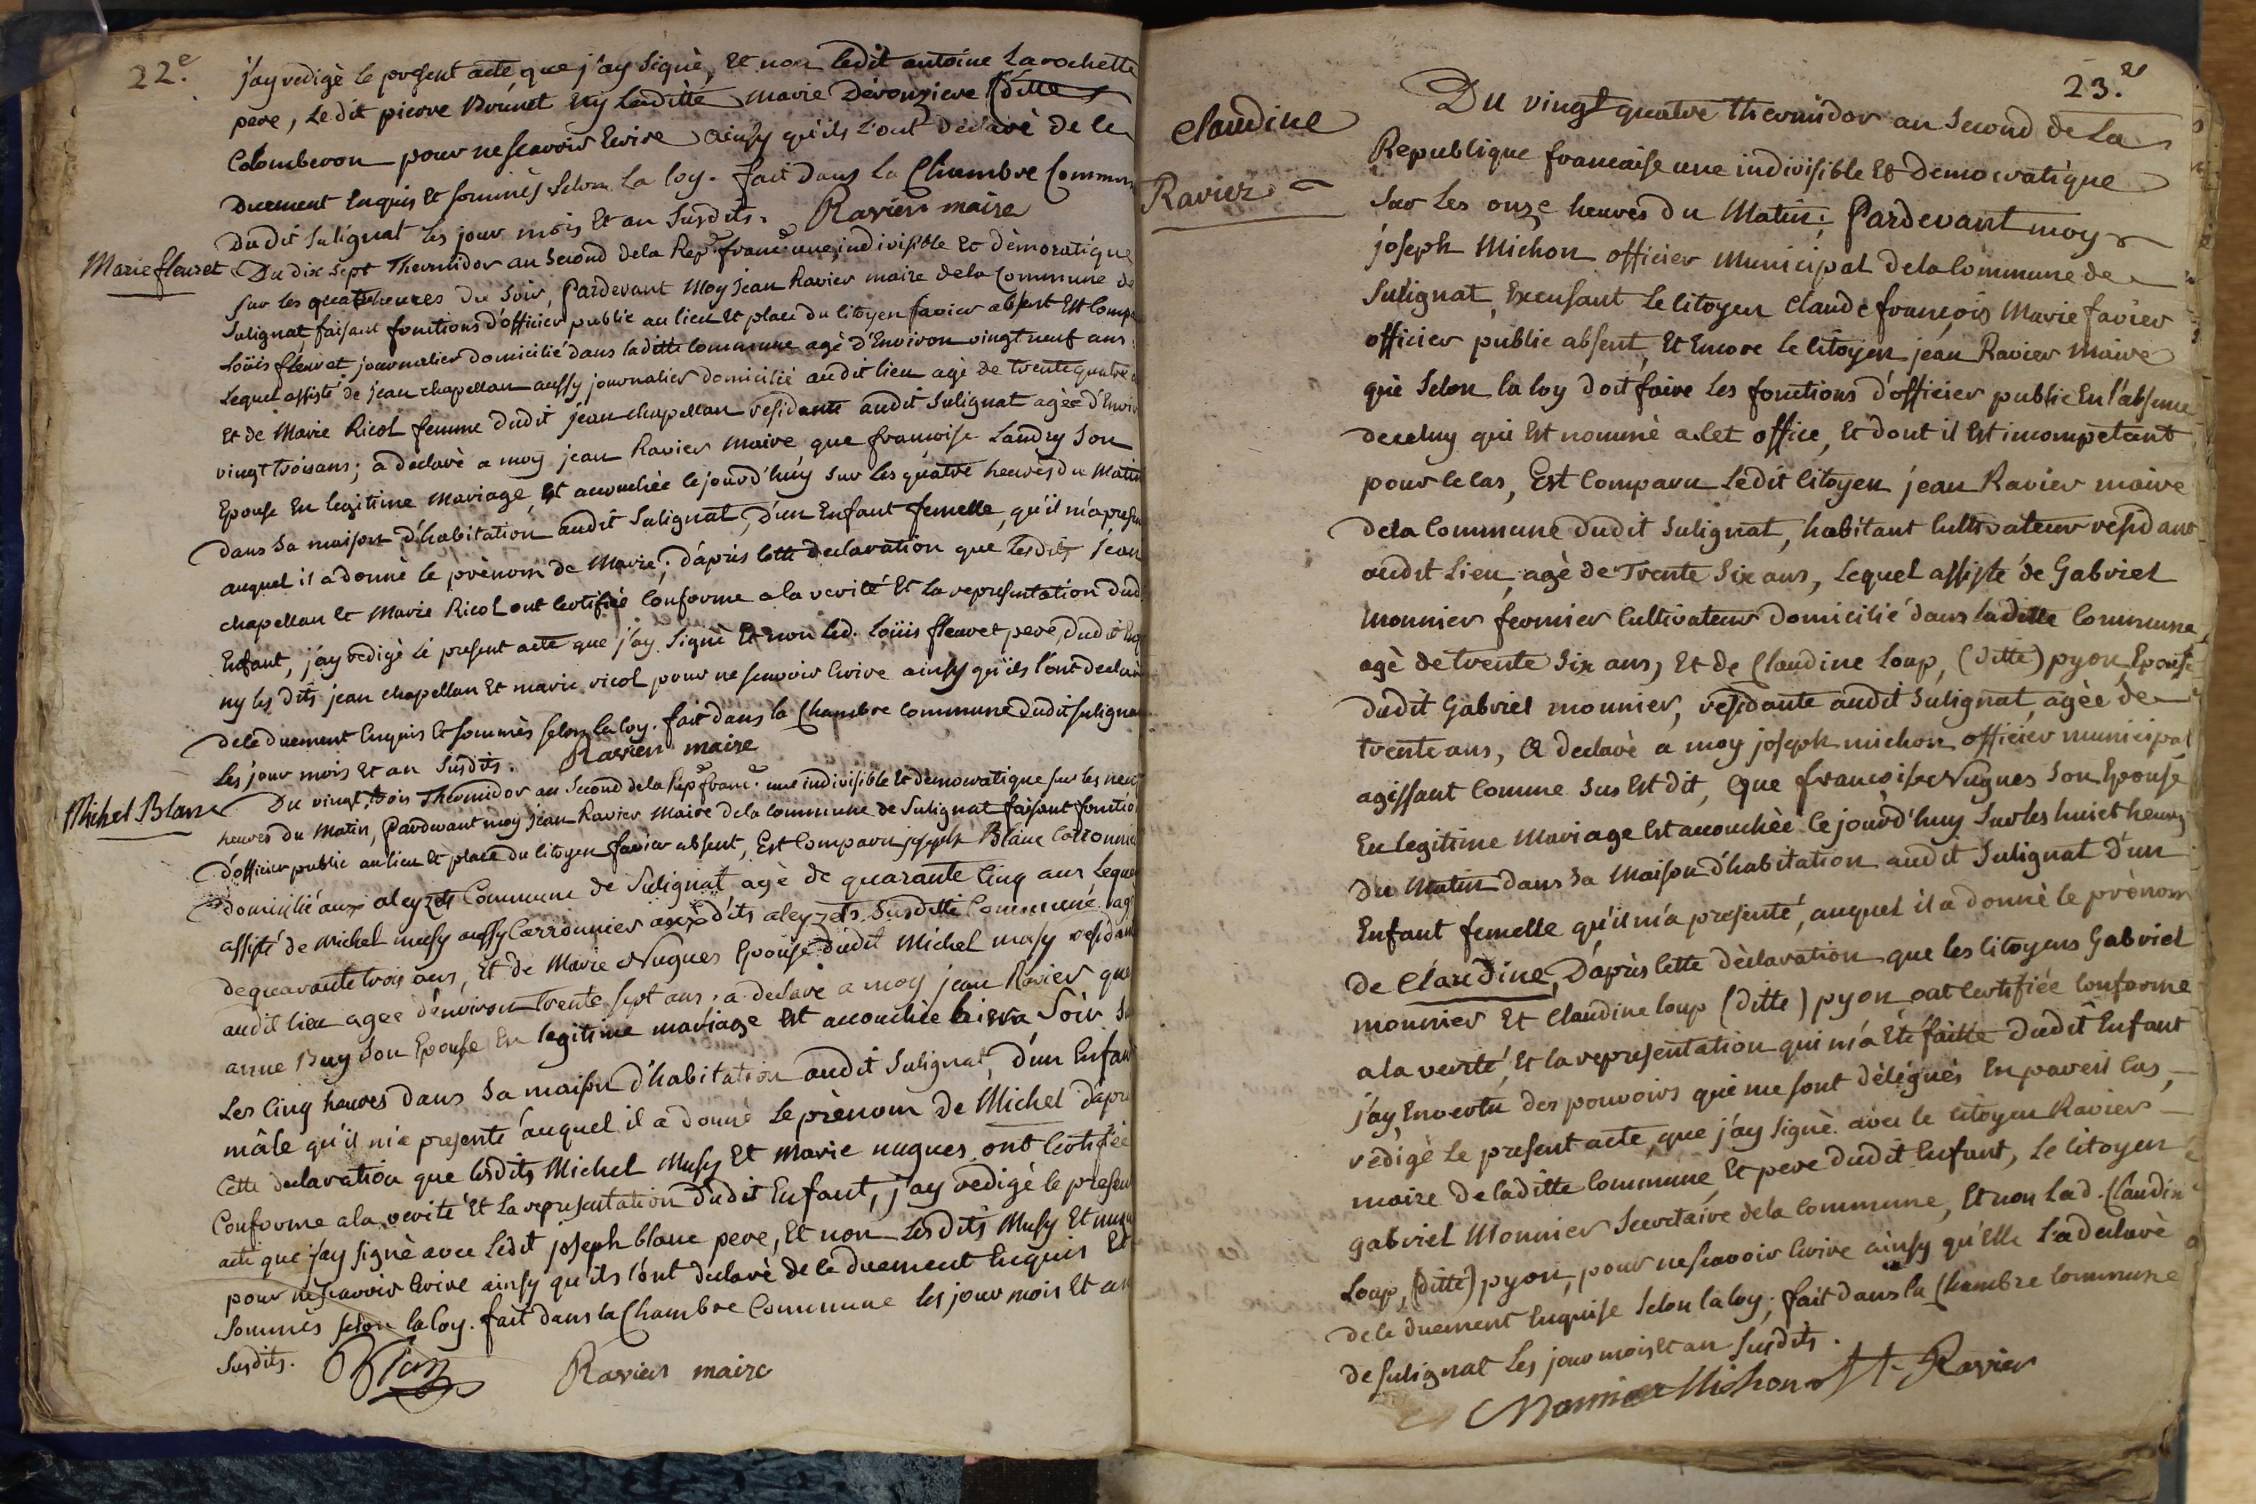 22.e
j'ay redigè le present acte que j'ay signè, Et non ledit antoine Larochette
pere, Ledit pierre Brunet Ny laditte marie Dérouziere (ditte
Colomberon pour ne scavoir Ecrire ainsy qu'ils l'ont déclarè de ce
Duement Enquis Et sommès selon la loy. fait dans la Chambre Commun
Dudit Sulignat les jour mois Et an susdits. Ravier maire
Marie fleuret
Du dix sept Thermidor an second dela Rep.e franc.e une, indivisible Et dèmoratique
sur les quatre heures du soir, Pardevant Moy jean Ravier maire dela Commune de
Sulignat, faisant fonctions d'officier public au lieu Et place du Citoyen favier absent Est Comp
Loüis fleuret journalier domicilié dans laditte Commune agè d'Environ vingt neuf ans
Lequel assisté de jean chapellan aussy journalier domicilié audit lieu agè de trente quatre a
Et de Marie Ricol femme dudit jean chapellan residante audit Sulignat agèe d'Envir
vingt trois ans; a declarè a moy jean Ravier maire, que françoise Landry son
Epouse En legitime Mariage, Est acouchèe cejourd'huy sur les quatre heures du Matin
dans sa maison d'habitation audit Sulignat, d'un Enfant femelle, qu'il m'a presen
auquel il a donnè le prènom de Marie; d'après cette declaration que lesdits jean
chapellan Et Marie Ricol ont Certifièe Conforme a la verité Et la representation dud
Enfant, j'ay redigè le present acte que j'ay signè Et non led. Loüis fleuret pere, dudit En
ny les dits jean chapellan Et marie ricol pour ne scavoir Ecrire ainsy qu'ils l'ont declarè
dece duement Enquis Et sommès selon la loy. fait dans la Chambre commune dudit Sulignat
les jour mois Et an susdits. Ravier maire
Michel Blanc
Du vingt trois Thermidor au second dela Rep.e franc.e une indivisible Et démocratique sur les neuf
heures du Matin, Pardevant moy jean Ravier Maire dela commune de Sulignat faisant fonctio
d'officier public au lieu Et place du Citoyen favier absent, Est Comparu joseph Blanc
domicilié aux aleyzets Commune de Sulignat agè de quarante Cinq ans, Leque
assisté de Michel musy aussy auxdits aleyzets susditte Commune agè
de quarante trois ans, Et de Marie Nugues Epouse dudit Michel musy residan
audit lieu agee d'environ trente sept ans, a declaré a moy jean Ravier que
anne Buy son Epouse En legitime mariage Est acouchèe hier a soir su
Les Cinq heures dans sa maison d'habitation audit Sulignat, d'un Enfan
mâle qu'il m'a presenté auquel il a donné Le prènom de Michel d'apr
Cette declaration que lesdits Michel Musy Et Marie nugues ont Certifièe
Conforme a la verité Et la representation dudit Enfant, j'ay redigè le presen
acte que j'ay signè avec ledit joseph blanc pere, Et non lesdits Musy Et nug
pour ne scavoir Ecrire ainsy qu'ils l'ont declarè de ce duement Enquis Et
sommès selon la loy. fait dans la Chambre Commune les jour mois Et an
susdits. Ravier maire
23.e
Claudine
Ravier
Du vingt quatre thermidor an second de La
Republique francaise une indivisible Et democratique
sur les onze heures du Matin; Pardevant moy
joseph Michon officier Municipal dela Commune de
Sulignat, Excusant Le Citoyen Claude françois Marie favier
officier public absent, Et Encore le Citoyen jean Ravier maire
què selon la loy doit faire les fonctions d'officier public En l'absence
de celuy qui Est nommè a cet office, Et dont il Est incompètant
pour le cas, Est Comparu Ledit Citoyen jean Ravier maire
dela Commune dudit Sulignat, habitant Cultivateur residant
audit Lieu, agè de Trente Six ans, Lequel assistè de Gabriel
Monnier fermier Cultivateur domicilié dans laditte Commune,
agè de trente Six ans, Et de Claudine Loup, (ditte) pyon, Epouse
dudit Gabriel monnier, residante audit Sulignat, agèe de
trente ans, A declarè a moy joseph michon officier municipal
agissant Comme sus Est dit, Que françoise Nugues son Epouse
En legitime Mariage Est acouchèe Cejourd'huy sur les huict heures
du Matin dans sa Maison d'habitation audit Sulignat d'un
Enfant femelle qu'il m'a presenté, auquel il a donnè le prènom
de Claudine, D'après Cette dèclaration que les Citoyens Gabriel
monnier Et Claudine loup (ditte) pyon ont Certifiée Conforme
a la verité, Et la representation qui m'a Eté faitte dudit Enfant
j'ay, En vertu des pouvoirs qui me sont délégués En pareil Cas,
rédigè Le present acte, que j'ay signè avec le Citoyen Ravier
maire de laditte Commune, Et pere dudit Enfant, Le Citoyen
Gabriel Monnier Secretaire dela Commune, Et non lad. Claudine
Loup, (ditte) pyon, pour ne scavoir Ecrire ainsy qu'Elle l'a declarè
de ce duement Enquise selon la loy; fait dans la Chambre Commune
de Sulignat Les jour mois Et an susdits.
Monnier Michon Ravier